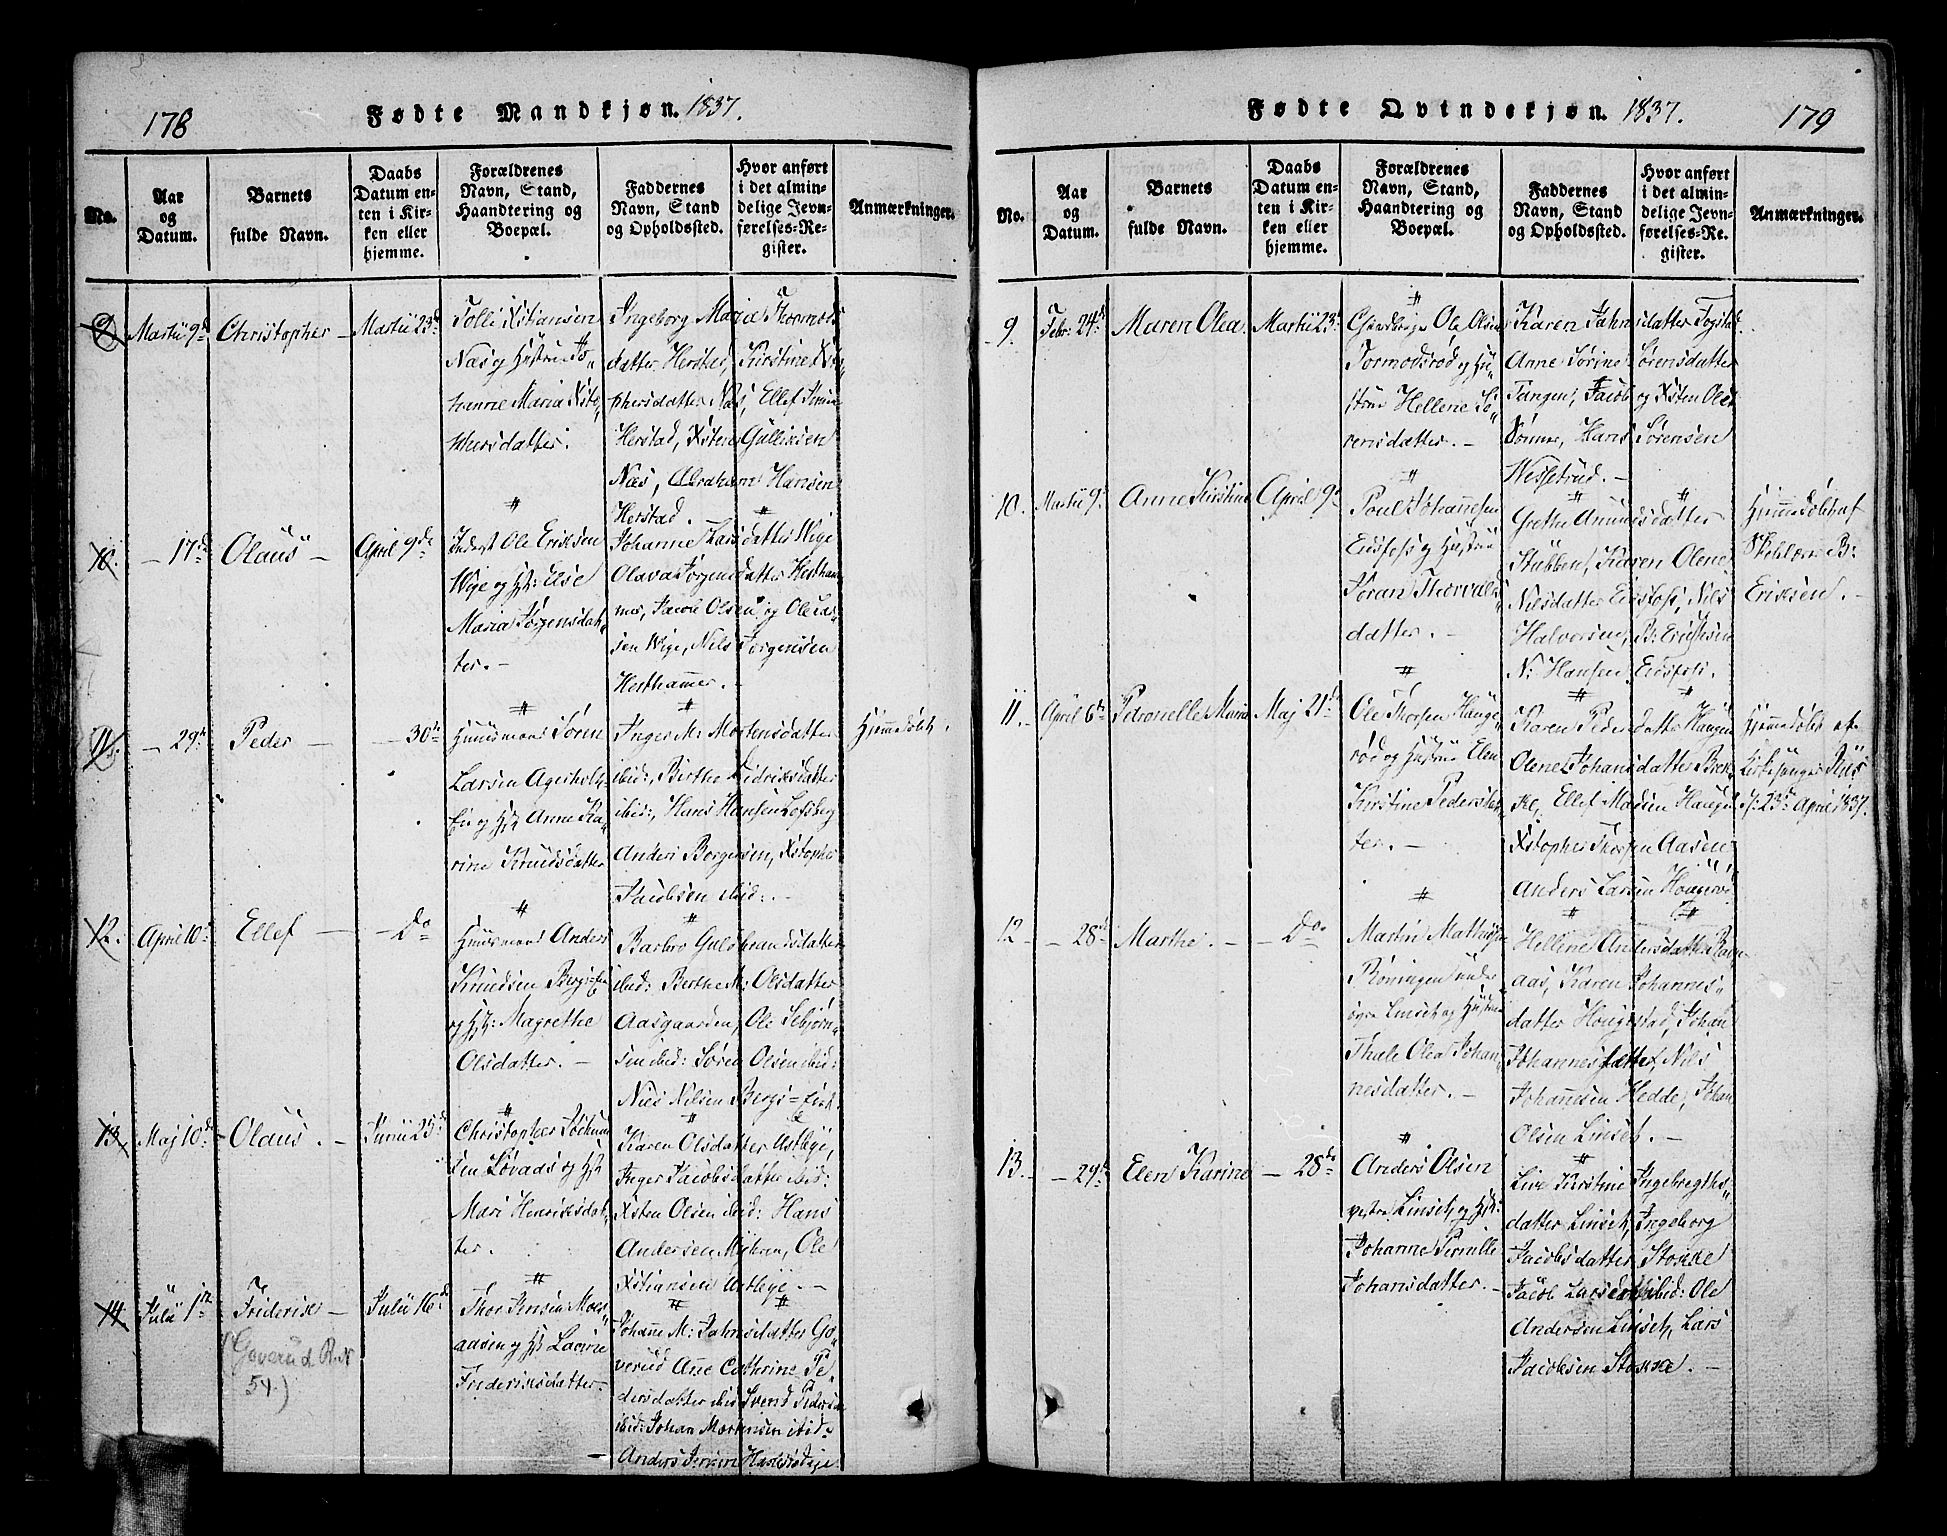 178
Fødte Mandkjøn. 1837.
No.
Aar
og
Datum.
Barnets
fulde Navn.
Daabs
Datum en-
ten i Kir-
ken eller
hjemme.
Forældrenes
Navn, Stand,
Haandtering og
Boepæl.
Faddernes
Navn, Stand
og Opholdssted.
Hvor anført
i det almin-
delige Jevn-
førelses-Re-
gister.
Anmærkninger.
9
Martii 9d
Christopher
Martii 23d
Tolli Xstiansen
Næs og Hustru Jo„
hanne Maria Xsto„
phersdatter.
Ingeborg Maria Thormods
datter Herstad, Kirstine Xsto„
phersdatter Næs, Ellef
Herstad, Xsten Gullixsen
Næs, Abraham Hansen
Herstad.
10.
— 17de
Olaus —
April 9de
Ole Eriksen
Wige og Hst: Else
Maria Jørgensdat„
ter. —
Johanne Larsdatter Wige
Olava Jørgensdatter Hestham„
mer, Jacob Olsen og Ole Lar„
sen Wige, Nils Jørgensen
Hesthammer. —
11.
— 29de
Peder —
— 30te
Huusmand Søren
Larsen Agerholt„
Eie og Hst Anne Ka„
rine Knudsdatter
Inger M: Mortensdatter
ibid:, Berthe Didriksdatter
ibid:, Hans Hansen Lofsberg
Anders Borgersen, Xstopher
Jacobsen ibid:. —
Hjemmedøbt.
12.
April 10de
Ellef —
— Do
Huusmand Anders
Knudsen Bergs=Eie
og Hst: Magrethe
Olsdatter. —
Barbro Gulbrandsdatter
ibid: Berthe M: Olsdatter
Aasgaarden, Ole Sebjørn„
sen ibid: Søren Olsen ibid:
Niels Nilsen Bergs=Eie
13
Maj 10de
Olaus. —
Junii 25de
Christopher
sen Løvaas og Hst
Mari Henriksdat„
ter.
Karen Olsdatter Ustbye,
Inger Jacobsdatter ibid:
Xsten Olsen ibid: Hans
Andersen Myhren, Ole
Xstiansen Ustbye. —
14.
Julii 1ste
Friderik —
(Goverud R. N
54.)
Julii 16de
Thor Jensen Moes„
aasen og Hst Laurine
Frideriksdatter. —
Johanne M: Jahnsdatter Go„
verud Ane Cathrine Pe„
dersdatter ibid Svend Pedersen
ibid: Johan Mortensen ibid.
Anders Jensen
179
Fødte Qvindekjøn. 1837.
No.
Aar
og
Datum.
Barnets
fulde Navn.
Daabs
Datum en-
ten i Kir-
ken eller
hjemme.
Forældrenes
Navn, Stand,
Haandtering og
Boepæl.
Faddernes
Navn, Stand
og Opholdssted.
Hvor anført
i det almin-
delige Jevn-
førelses-Re-
gister.
Anmærkninger.
9.
Febr: 24de
Maren Olea.
Martii 23de
Ole Olsen
Tormodsrød og Hu„
strue Hellene Sø„
rensdatter. —
Karen Jahnsdatter Fogstad
Anne Sørine Sørensdatter
Tangen, Jacob og Xsten Ols
Sønner, Hans Sørensen
Wessetrud. —
10.
Martii 9de
Anne Kirstine
April 9de
Poul Johannesen
Eidsfoss og Hustrue
Joran Thorvalds„
datter. —
Grethe Amundsdatter
Stubben, Karen Olene
Nilsdatter Eidsfoss, Nils
Halvorsen, B: Erichsen
N: Hansen Eidsfoss.
Hjemmedøbt af
Skolelærer B:
Eriksen. —
11. —
April 6te
Petronelle Maria
Maj 21de
Ole Thorsen Hauge„
rød og Hustrue Elen
Kirstine Pedersdat„
ter. —
Karen Pedersdatter Haugen
Olene Johansdatter Brek„
ke, Ellef Madsen Haugen
Xstopher Thorsen Aasen
Anders Larsen Haugerød
Hjemmedøbt af
Kirkesanger Riis
d: 23de April 1837.
12 —
— 28de
Marthe. —
— Do.
Martin Mathisen
Røningen under
øvre Linset og Hustrue
Thale Olea Johan„
nesdatter. —
Hellene Andersdatter Ravn„
aas, Karen Johannes„
datter Hougestad, Johan
Johannes Sætter, Nils
Johannesen Hedde, Johan
Olsen Linset. —
13. —
— 29de
Elen Karine
— 28de
Anders Olsen
vestre Linset og Hst:
Johanne Pernille
Johansdatter. —
Live Kirstine Ingebregths„
datter Linset, Ingeborg
Jacobsdatter Stokke
Jacob Larsen ibid: Ole
Andersen Linset, Lars
Jacobsen Stokke. —